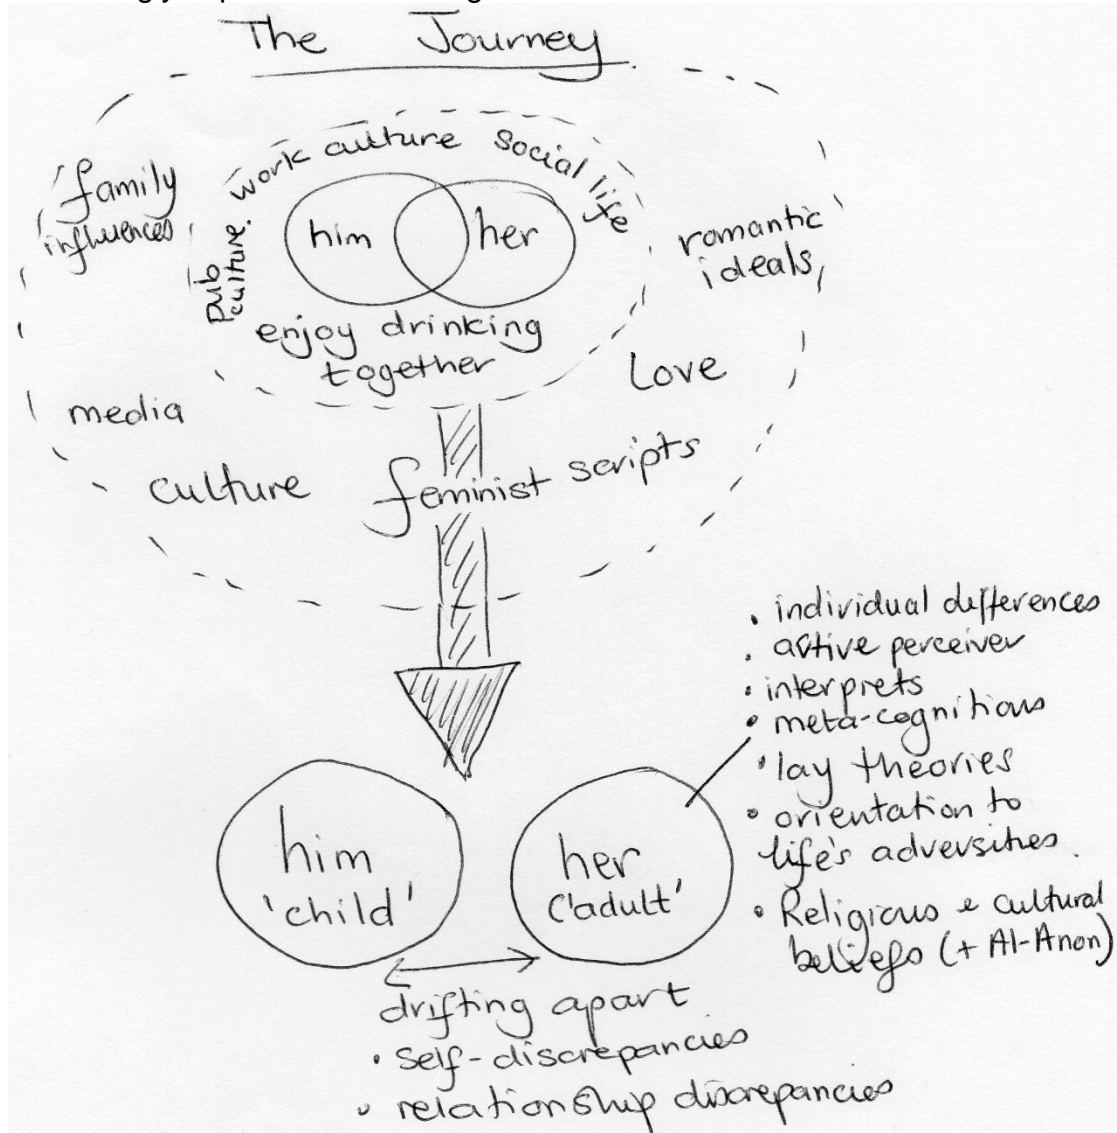 The Journey
family
influences
work culture social life
pub
culture
him
her
enjoy drinking
together
romantic
ideals
Love
media
culture
feminist scripts
• individual differences
• active perceiver
• interprets
• meta-cognitions
• lay theories
• orientation to
life's adversities.
• Religious & cultural
beliefs (+ Al-Anon)
him
'child'
her
('adult'
drifting apart
• self-discrepancies
• relationship discrepancies